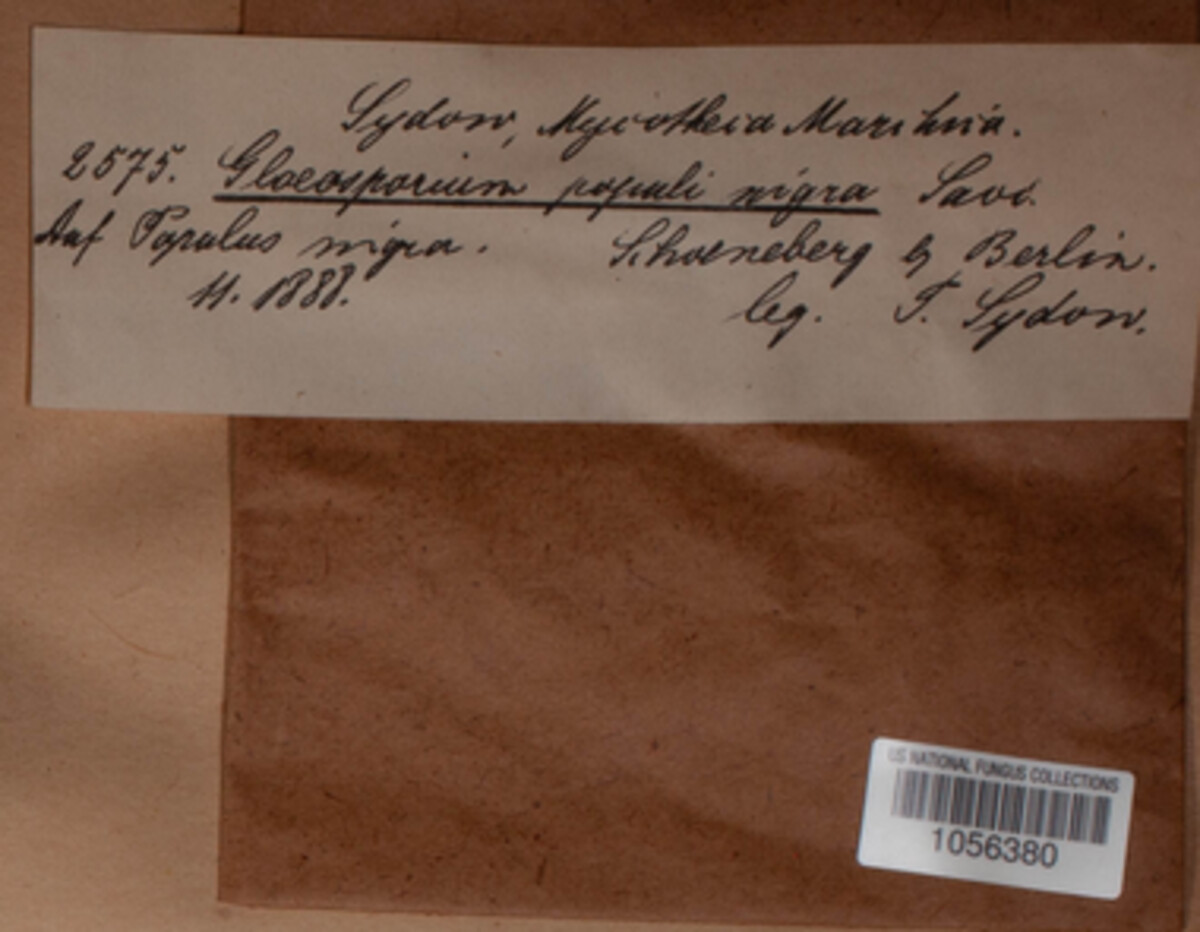 Sydow, Mycotheca Marchica.
2575. Gloeosporium populi nigra Sacc.
Auf Populus nigra. Schoeneberg b Berlin.
11. 1888. leg. P. Sydow.
US NATIONAL FUNGUS COLLECTIONS
1056380